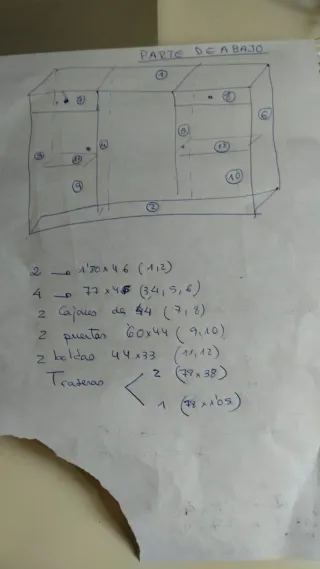 PARTE DE ABAJO
1
7
8
6
3
4
5
11
12
9
10
2
2 → 1'90x46 (1,2)
4 → 77x46 (3,4,5,6)
2 Cajones de 44 (7,8)
2 puertas 60x44 (9,10)
2 baldas 44x33 (11,12)
Traseras
2 (78x38)
1 (78x1'05)